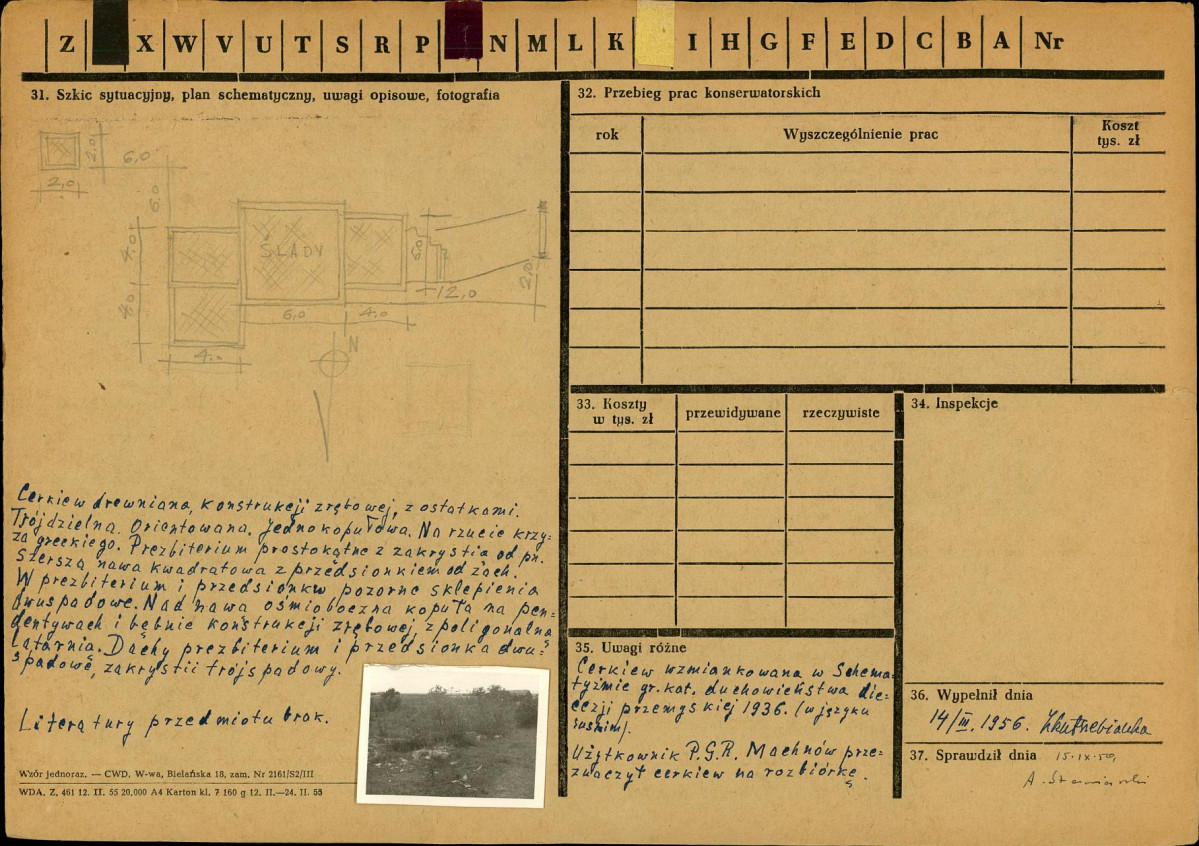 Z X W V U T S R P N M L K I H G F E D C B A Nr
31. Szkic sytuacyjny, plan schematyczny, uwagi opisowe, fotografia
2,0
6,0
2,0
6.0
4.0
ŚLADY
6.0
2,0
12,0
4.0
6,0
4.0
4.
N
Cerkiew drewniana, konstrukcji zrębowej, z ostatkami.
Trójdzielna. Orientowana. Jednokopułowa. Na rzucie krzy=
ża greckiego. Prezbiterium prostokątne z zakrystią od pn.
Szersza nawa kwadratowa z przedsionkiem od zach.
W prezbiterium i przedsionku pozorne sklepienia
dwuspadowe. Nad nawą ośmioboczna kopuła na pen=
dentywach i bębnie konstrukcji zrębowej, z poligonalną
latarnią. Dachy prezbiterium i przedsionka dwu=
spadowe, zakrystii trójspadowy.
Literatury przedmiotu brak.
Wzór jednoraz. — CWD, W-wa, Bielańska 18, zam. Nr 2161/S2/III
WDA. Z. 461 12. II. 55 20,000 A4 Karton kl. 7 160 g 12. II.—24. II. 55
32. Przebieg prac konserwatorskich
rok
Wyszczególnienie prac
Koszt
tys. zł
33. Koszty
w tys. zł
przewidywane
rzeczywiste
34. Inspekcje
35. Uwagi różne
Cerkiew wzmiankowana w Schema=
tyźmie gr. kat. duchowieństwa die=
cezji przemyskiej 1936. (w języku
ruskim).
Użytkownik P.G.R. Machnów prze=
znaczył cerkiew na rozbiórkę.
36. Wypełnił dnia
14/III. 1956.
37. Sprawdził dnia 15.IX.59,